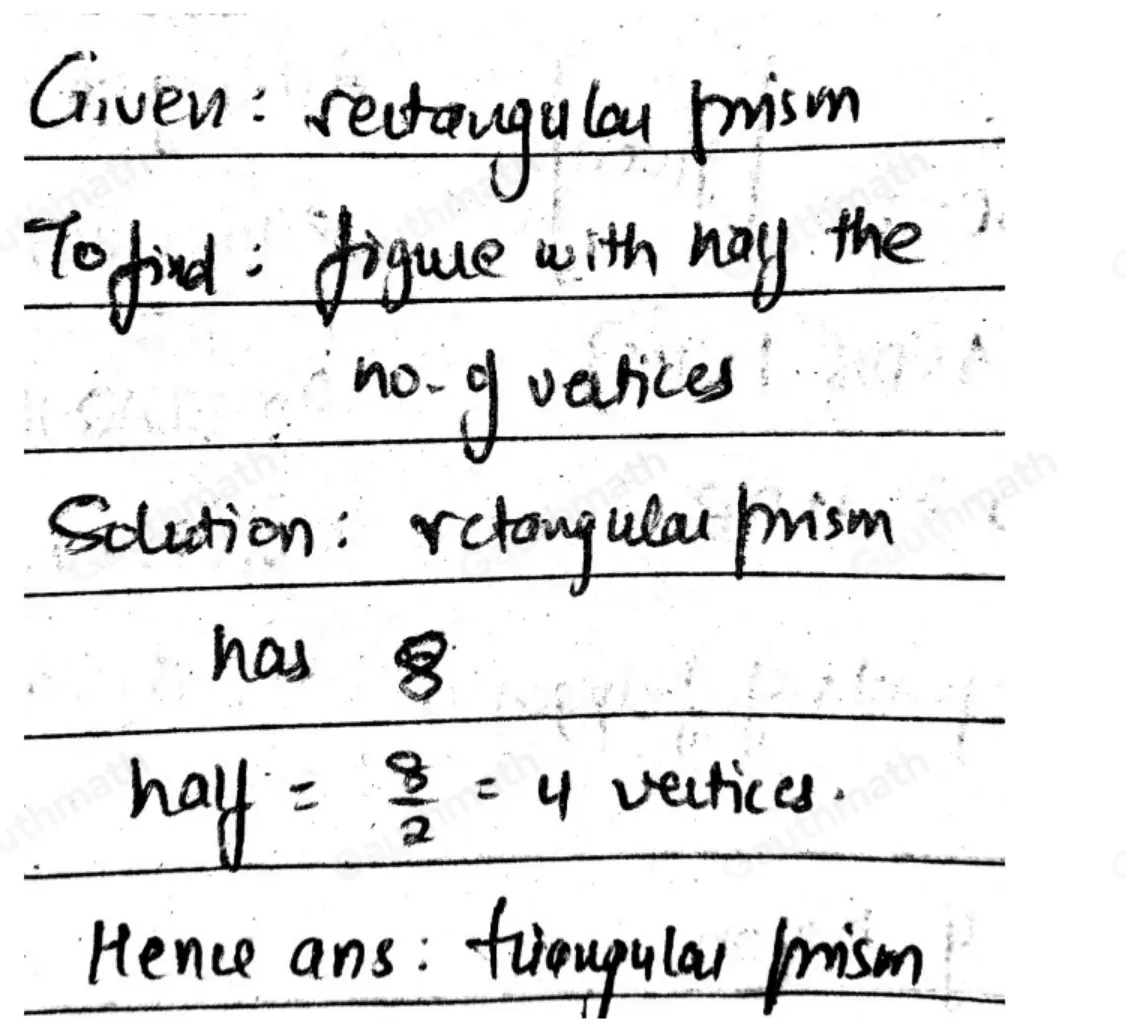 Given: rectangular prism
To find: figure with half the
no. of vertices
Solution: rctangular prism
has 8
half = 8/2 = 4 vertices.
Hence ans: triangular prism